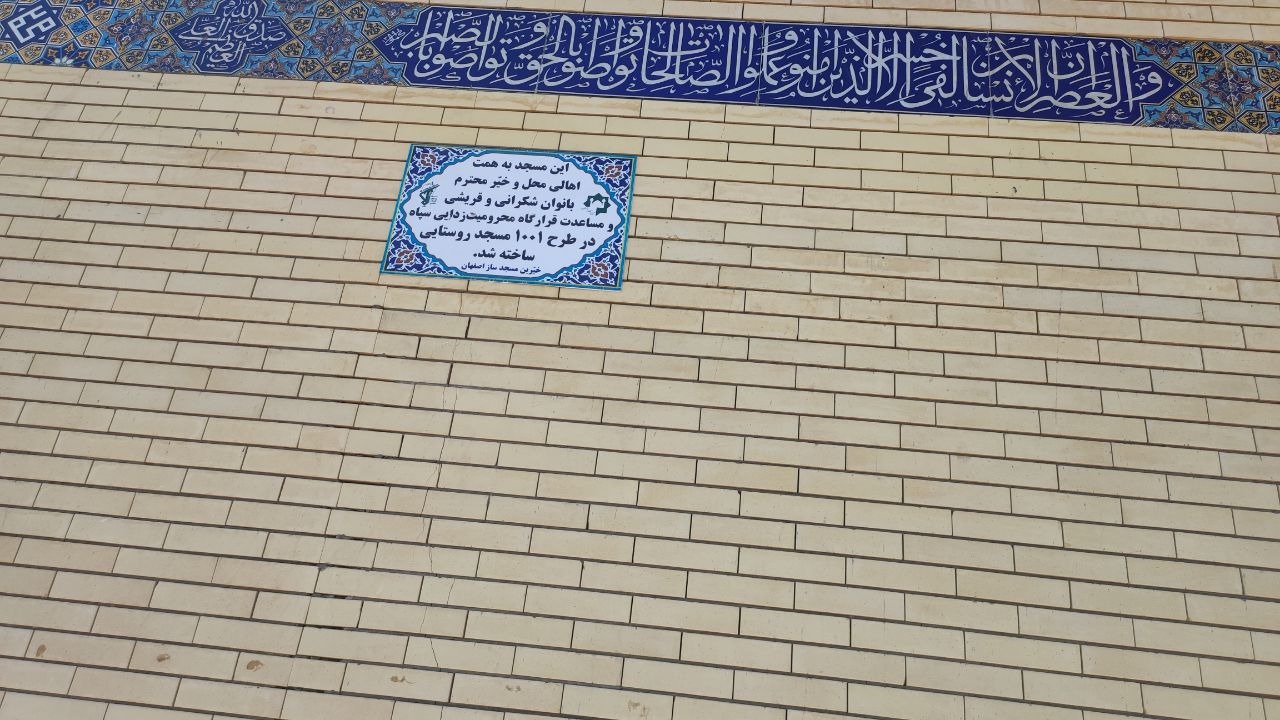 والعصر ان الانسان لفی خسر الا الذین امنوا وعملوا الصالحات وتواصوا بالحق وتواصوا بالصبر
صدق الله العلی العظیم
این مسجد به همت
اهالی محل و خیّر محترم
بانوان شکرانی و قریشی
و مساعدت قرارگاه محرومیت‌زدایی سپاه
در طرح ۱۰۰۱ مسجد روستایی
ساخته شد.
خیّرین مسجد ساز اصفهان